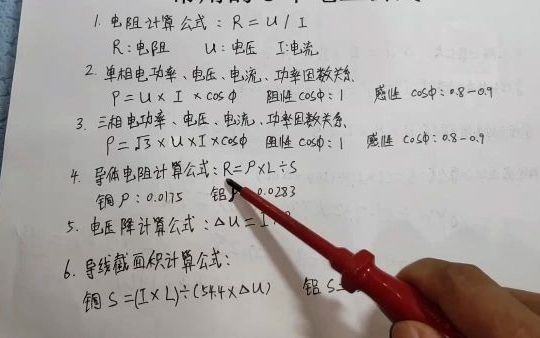 1. 电阻计算公式：R = U / I
R：电阻 U：电压 I：电流
2. 单相电功率、电压、电流、功率因数关系
P = U × I × cosφ 阻性 cosφ：1 感性 cosφ：0.8-0.9
3. 三相电功率、电压、电流、功率因数关系
P = √3 × U × I × cosφ 阻性 cosφ：1 感性 cosφ：0.8-0.9
4. 导体电阻计算公式：R = ρ × L ÷ S
铜 ρ：0.0175 铝 0.0283
5. 电压降计算公式：△U = I
6. 导线截面积计算公式：
铜 S = (I × L) ÷ (54.4 × △U) 铝 S =